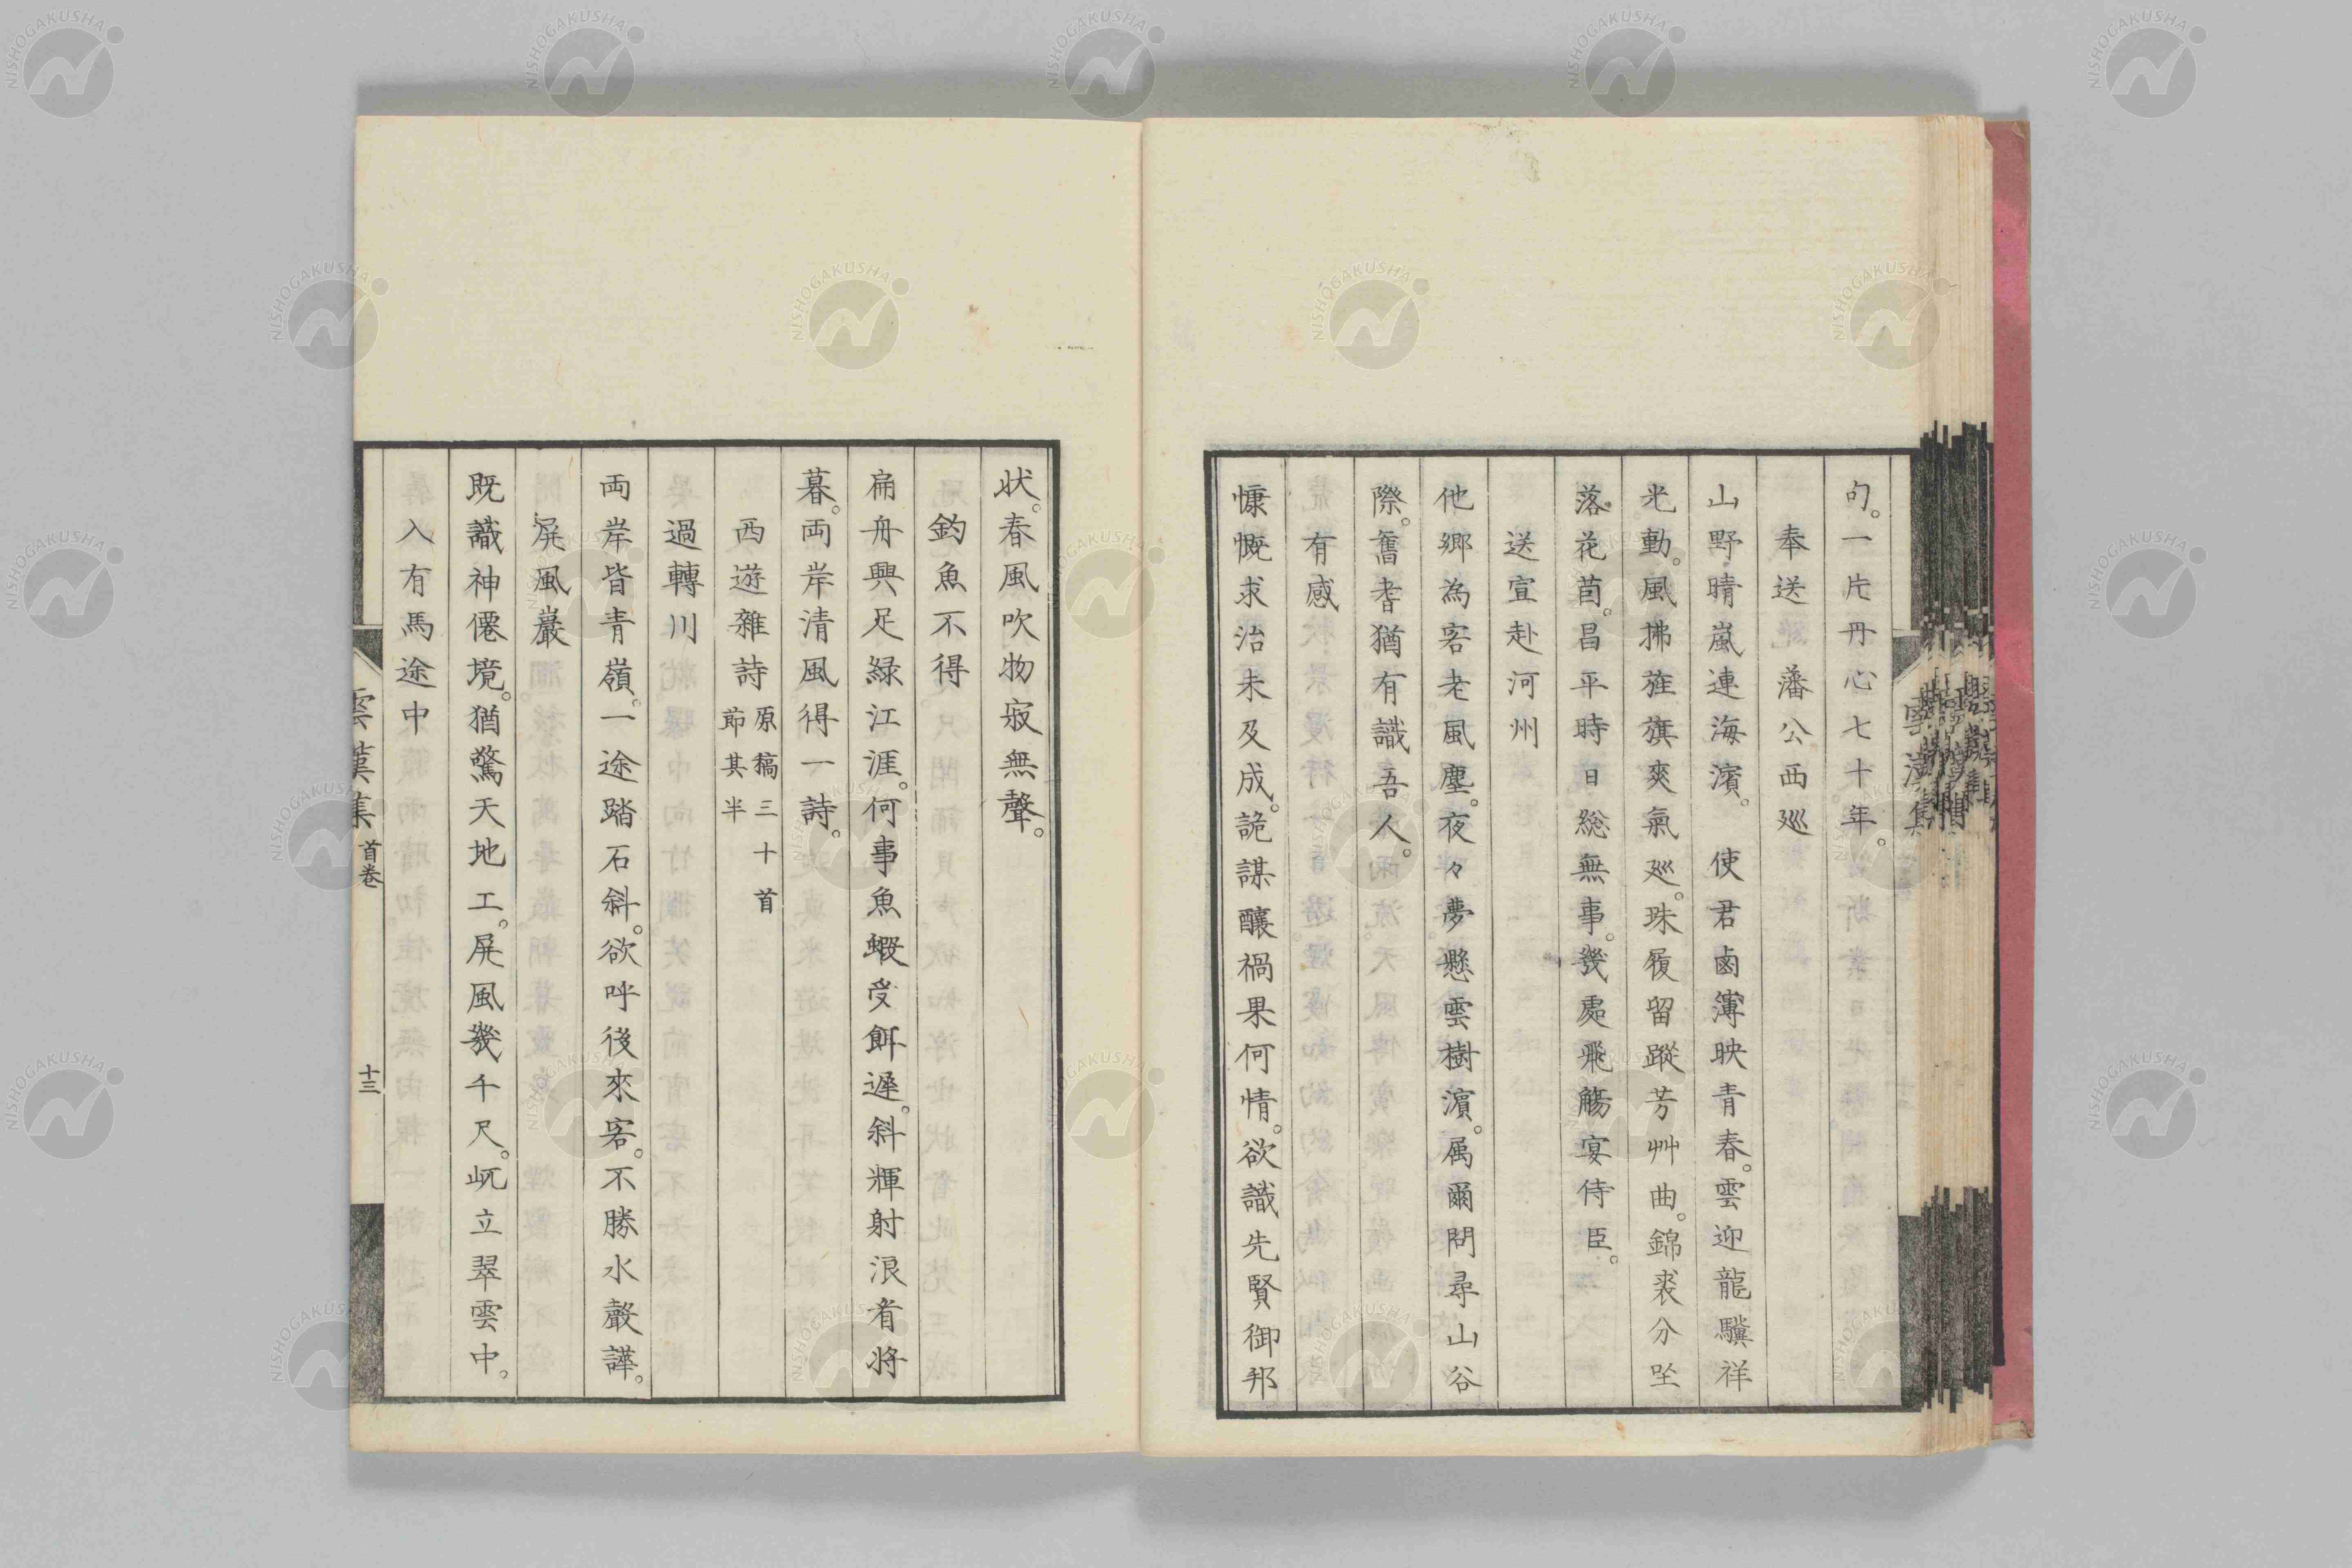 句。一片丹心七十年。
奉送 藩公西廵
山野晴嵐連海濱。 使君鹵簿映青春。雲迎龍驥祥
光動。風拂旌旗爽氣廵。珠履留蹤芳艸曲。錦裘分坐
落花茵。昌平時日総無事。幾處飛觴宴侍臣。
送宣赴河州
他郷為客老風塵。夜々夢懸雲樹濱。属爾問尋山谷
際。舊耆猶有識吾人。
有感
慷慨求治未及成。詭謀釀禍果何情。欲識先賢御邦
状。春風吹物寂無聲。
釣魚不得
扁舟興足緑江涯。何事魚蝦受餌遲。斜輝射浪看將
暮。両岸清風得一詩。
西遊雜詩 原稿三十首
節其半
過轉川
両岸皆青嶺。一途踏石斜。欲呼後來客。不勝水聲譁。
屏風巖
既識神僊境。猶驚天地工。屏風幾千尺。屹立翠雲中。
入有馬途中
雲漢集 首巻 十三
NISHOGAKUSHA